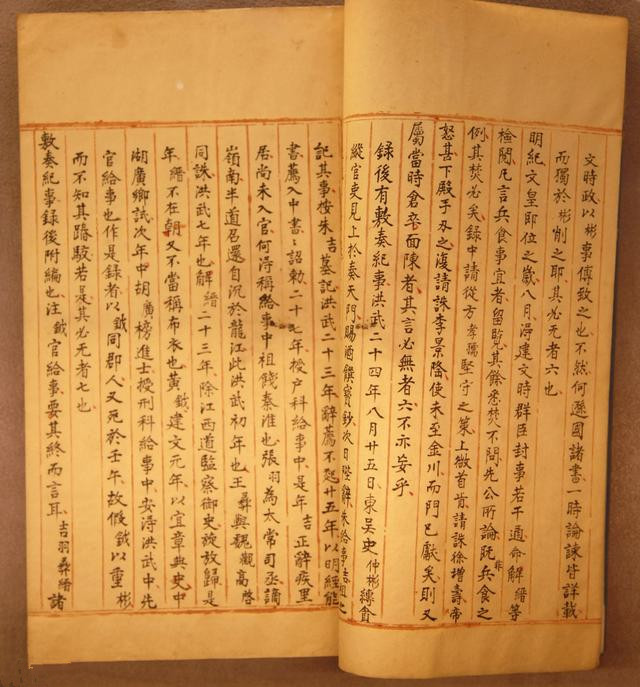 文時政以彬事傅致之也不然何遜國諸書一時論諫皆詳載
而獨於彬削之耶其必无者六也
明紀文皇即位之歲八月淂建文時群臣封事若干通命解縉等
檢閱凡言兵食事宜者留覽其餘悉焚不問先公所論既非兵食之
例其焚必矣録中請從方孝孺堅守之策上微首肯請誅徐增壽帝
怒甚下殿手刃之復請誅李景隆使未至金川而門已獻矣則又
屬當時倉卒面陳者其言必無者六不亦妄乎
録後有敷奏紀事洪武二十四年八月廿五日東吳史仲彬縛貪
縱官吏見上於奏天門賜酒饌寳鈔次日陛辭朱給事吉祖之
記其事按朱吉墓記洪武二十三年辭薦不起廿五年以明經能
書薦入中書詔勅二十七年授户科給事中是年吉正辭疾里
居尚未入官何淂稱給事中祖餞秦淮也張羽為太常司丞謫
嶺南半道召還自沉於龍江此洪武初年也王彞與魏觀高啓
同誅洪武七年也解縉二十三年除江西道監察御史旋放歸是
年縉不在朝又不當稱布衣也黄鉞建文元年以宜章典史中
湖廣鄉試次年中胡廣榜進士授刑科給事中安淂洪武中先
官給事也作是録者以鉞同郡人又死於壬午故假鉞以重彬
而不知其踳駁若是其必无者七也
敷奏紀事録後附編也注鉞官給事要其終而言耳吉羽彞縉諸